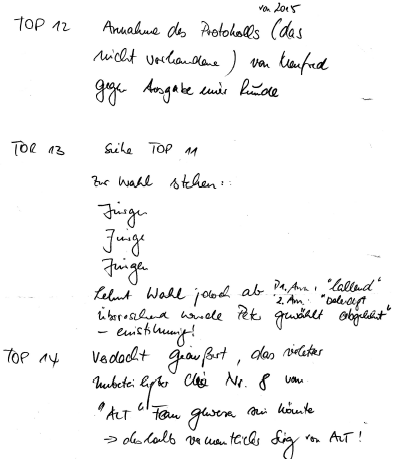 von 2015
TOP 12 Annahme des Protokolls (das
nicht vorhandene) von Manfred
gegen Ausgabe einer Runde
TOP 13 siehe TOP 11
Zur Wahl stehen:
Jürgen
Jürgen
Jürgen
Lehnt Wahl jedoch ab 1. Anm.: "lallend"
2. Anm.:
überraschend wurde Peter gewählt
- einstimmig!
TOP 14 Verdacht geäußert, das
Unbeteiligter Nr. 8 vom
"ALT" Team gewesen sein könnte
→ deshalb Sieg von ALT!